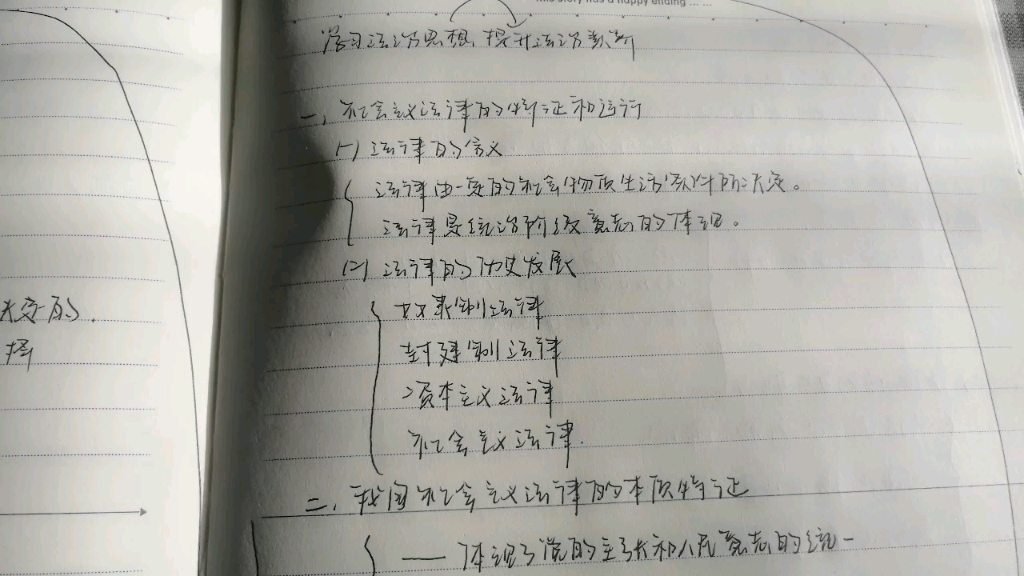 This story has a happy ending ... ...
学习法治思想 提升法治素养
一、社会主义法律的特征和运行
(一) 法律的含义
法律由一定的社会物质生活条件所决定。
法律是统治阶级意志的体现。
(二) 法律的历史发展
奴隶制法律
封建制法律
资本主义法律
社会主义法律.
二、我国社会主义法律的本质特征
—— 体现了党的主张和人民意志的统一
决定的.
择